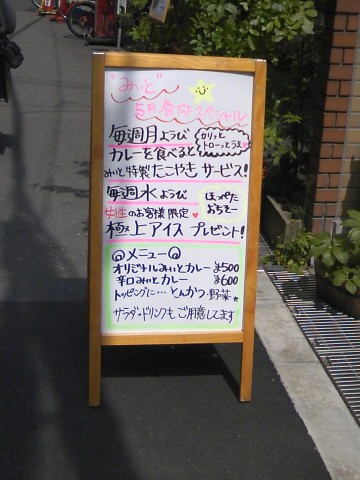 "みいと"
5月 春だよスペシャル
毎週月ようび
カリッと
トローッとうま♥
カレーを食べると
みいと特製たこやきサービス!
毎週水ようび
ほっぺた
おちそー
女性のお客様限定♥
極上アイスプレゼント!
メニュー
オリジナルみいとカレー ¥500
辛口みいとカレー ¥600
トッピングに…とんかつ・野菜☆
サラダ・ドリンクもご用意してます